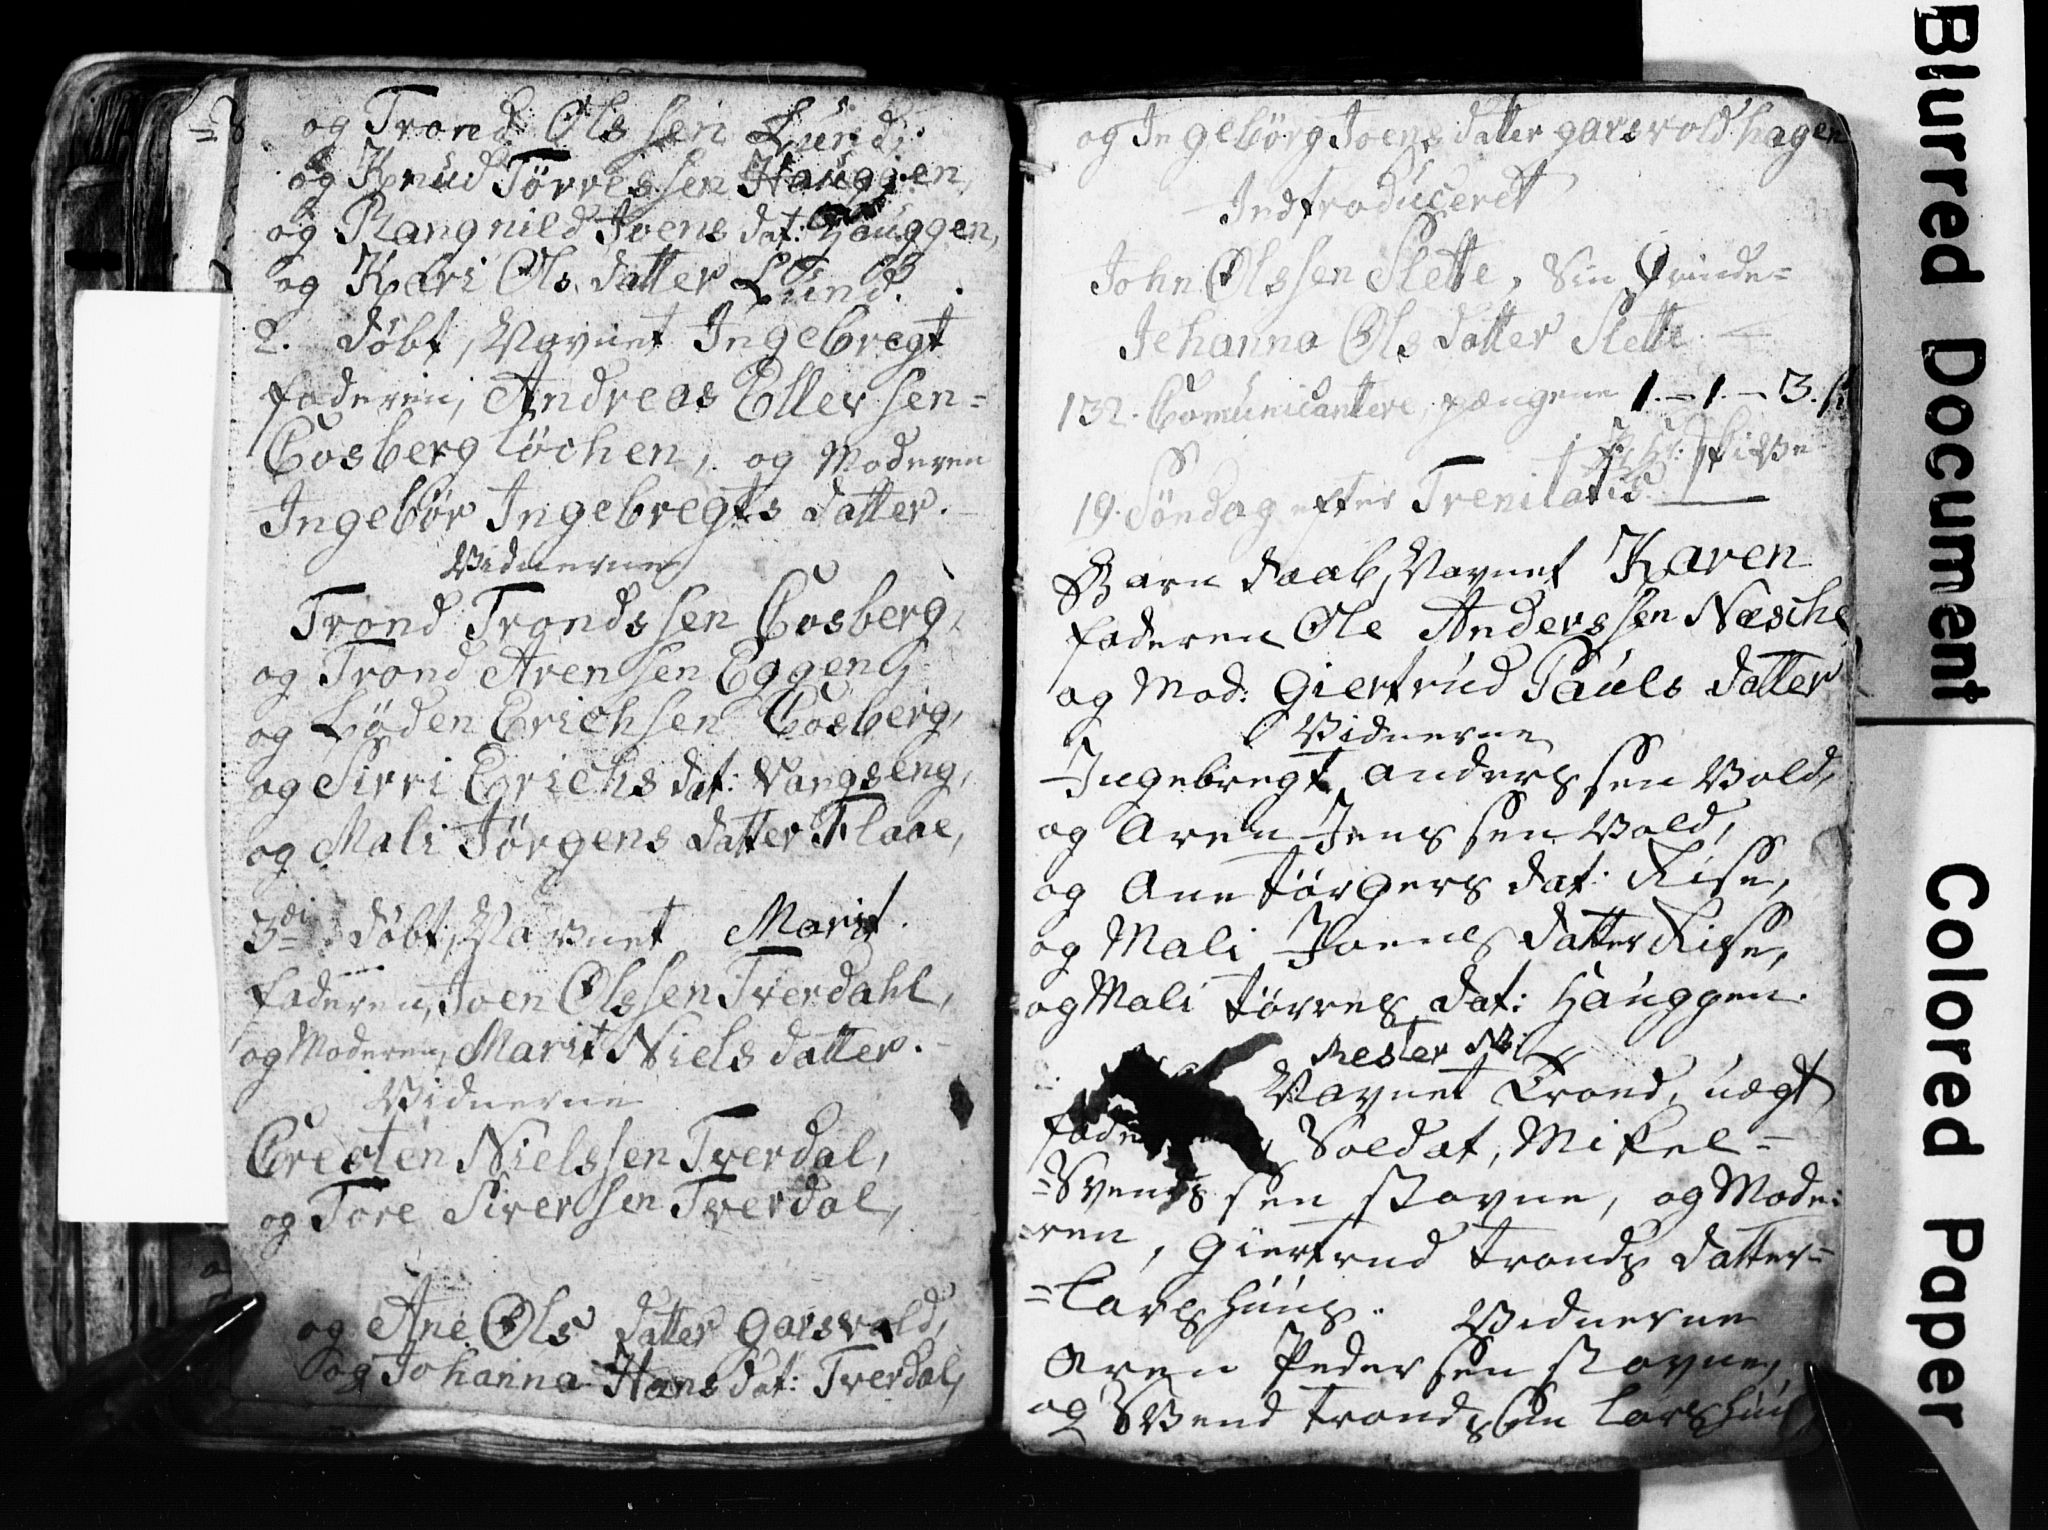 og Trond Olssen Lund,
og Knud Tørressen Hauggen,
og Rangnild Joens dat: Hauggen,
og Kari Ols datter Lund.
2. døbt, Navnet Ingebregt
faderen, Andreas Ellersen=
Cosberg løchen, og Moderen
Ingebør Ingebregts datter.
Vidnerne
Trond Trondssen Cosberg,
og Trond Arensen Eggen,
og Løden Erichsen Cosberg,
og Sirri Erichs dat: Vangseng,
og Mali Jørgens datter Flaae,
3di døbt, Navnet Marit.
faderen, Joen Olssen Tverdahl,
og Moderen, Marit Niels datter.
Vidnerne
Cresten Nielssen Tverdal,
og Tore Siversen Tverdal,
og Ane Ols datter Garsvold,
og Johanna Hans dat: Tverdal,
og Ingebørg Joens datter garsvoldhagen
Indtroduceret
John Olssen Slette, Sin Qvinde=
Jehanna Ols datter Slette.
132. Comunicantere, pængene 1.-1.-3.
19. Søndag efter Trenitatis
Barn daab, Navnet Karen
faderen Ole Anderssen Næsche
og Mod: Giertrud Pauls datter
Vidnerne
Ingebregt anderssen Vold,
og Aren Jenssen Vold,
og Ane Jørgens dat: Rise,
og Mali Joens datter Rise,
og Mali Tørres dat: Hauggen.
Mester
Navnet Trond, uægt
Soldat, Mikel=
=Svendssen Stavne, og Mode=
=ren, Giertrud Tronds datter=
=Larshuus. Vidnerne
Aren Pedersen Stavne,
og Svend Trondssen Larshuus
Blurred Document
Colored Paper